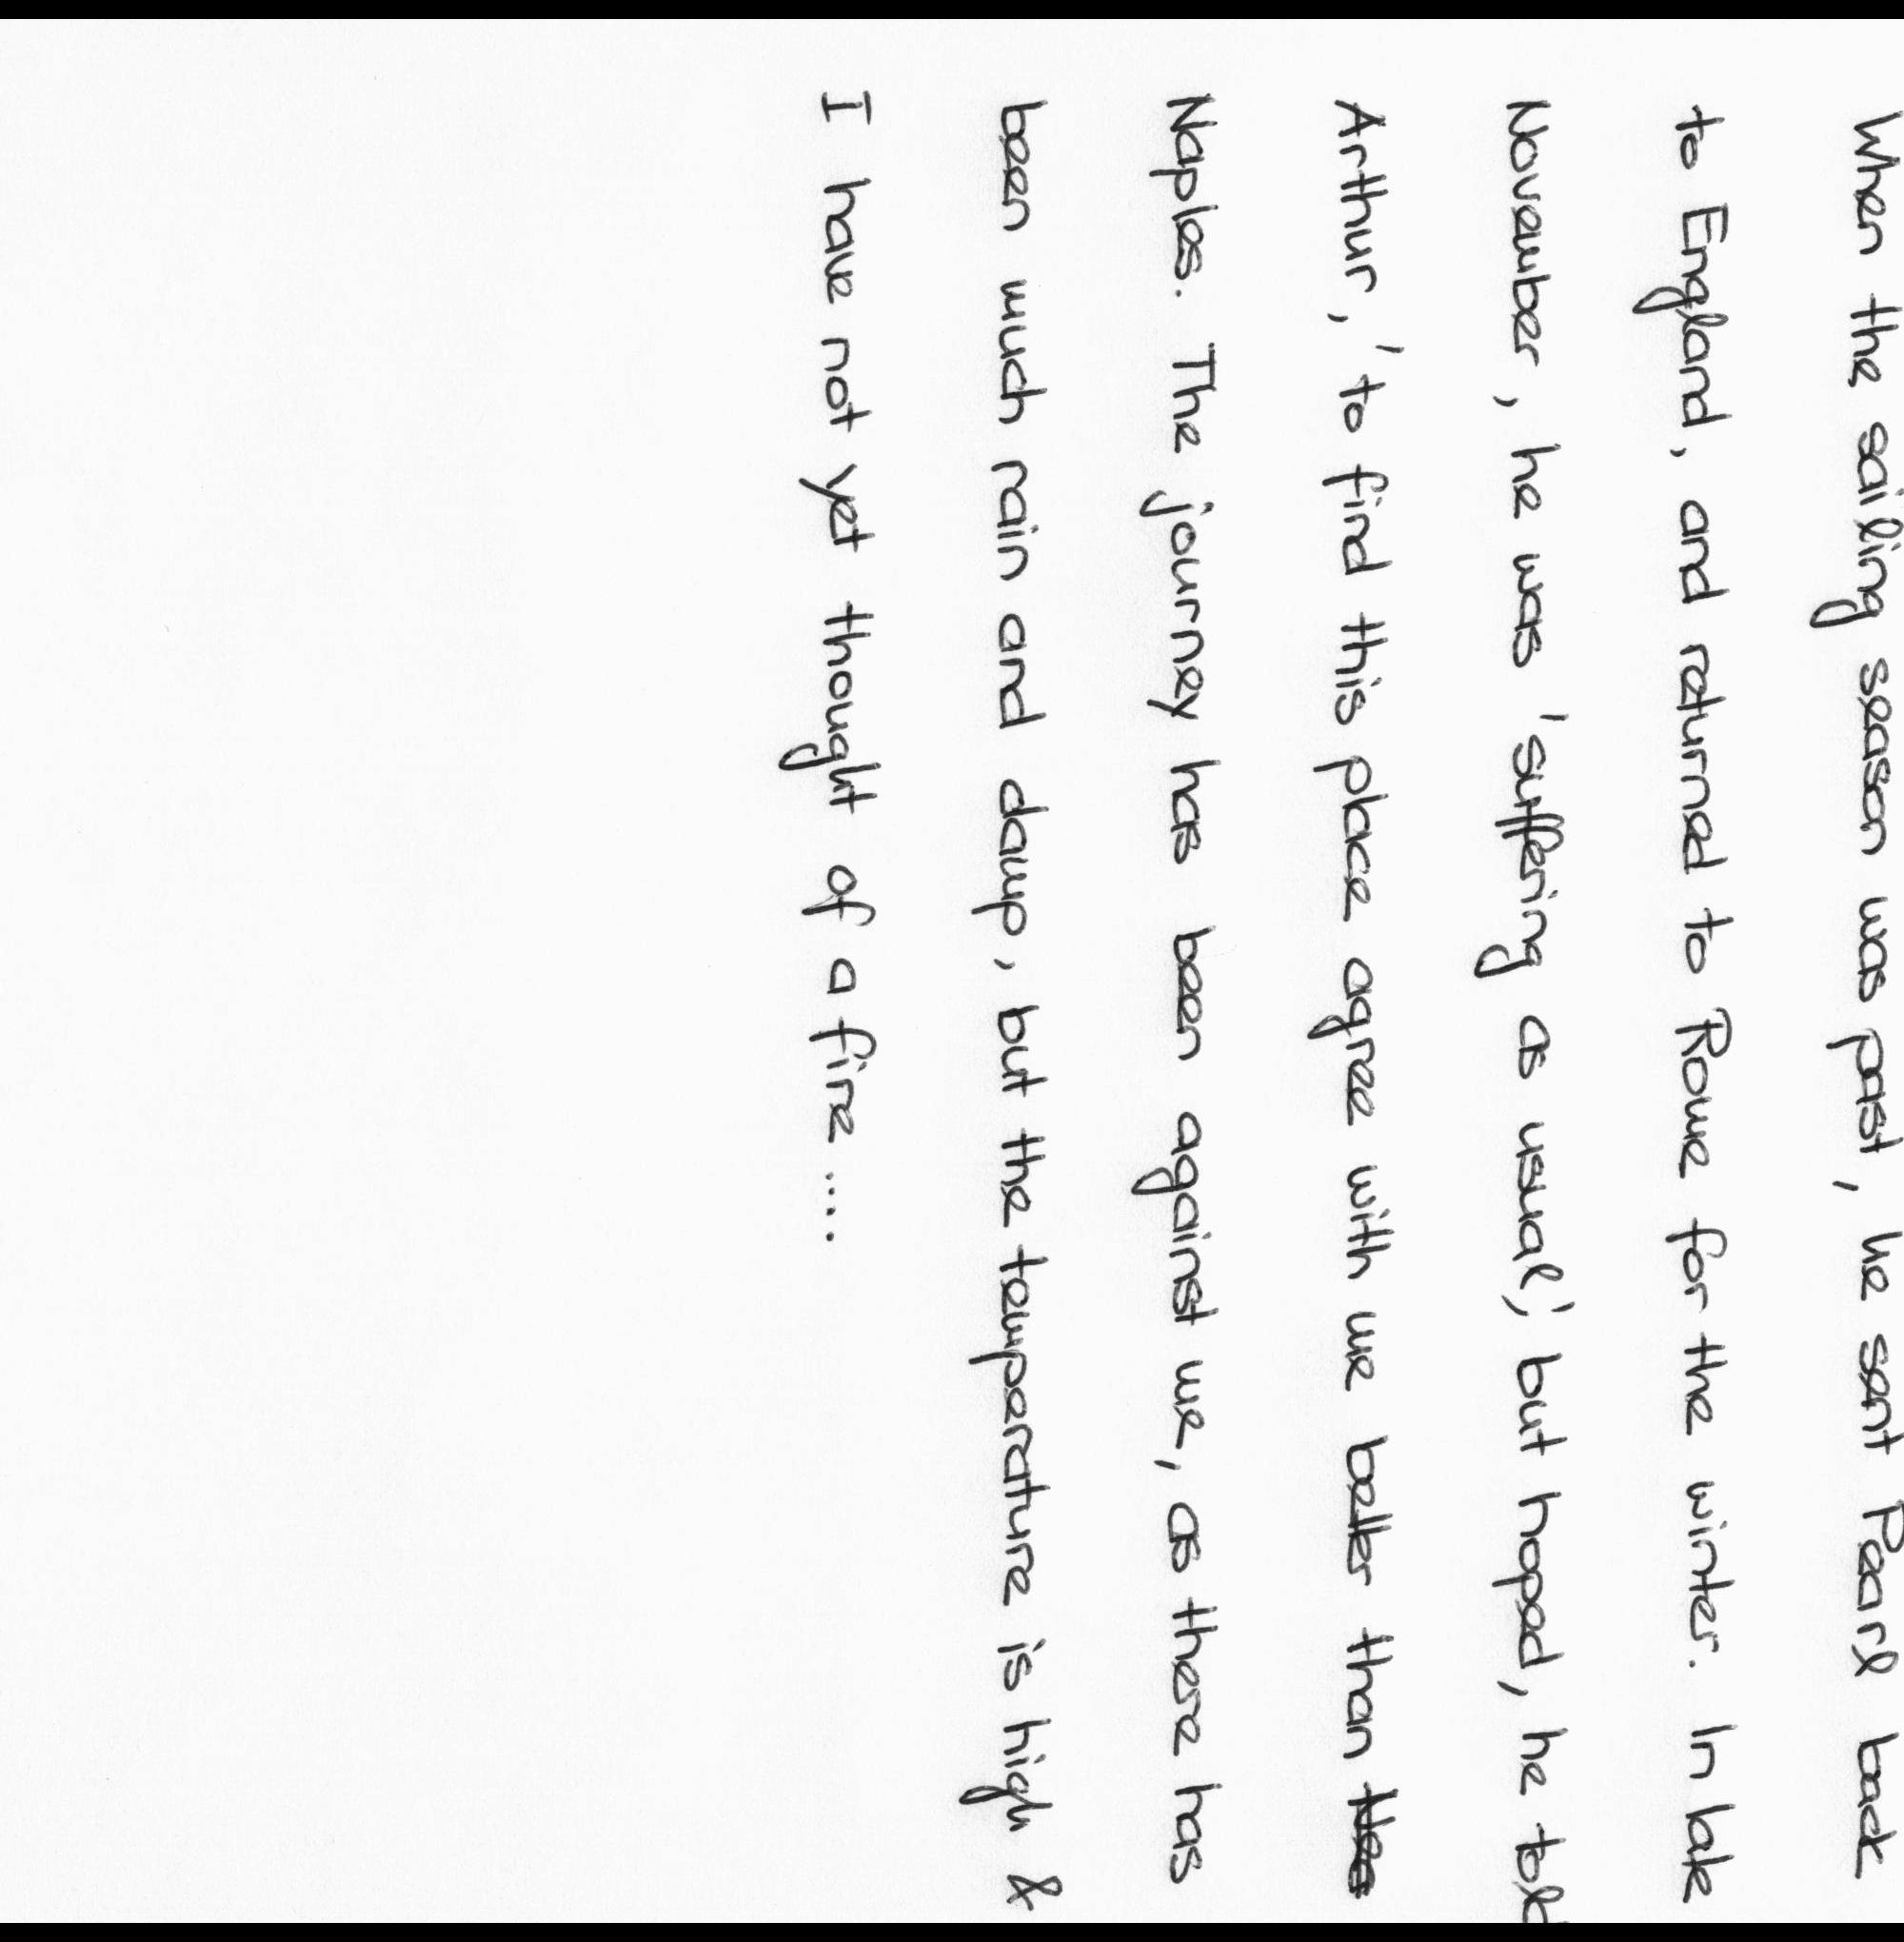 When the sailing season was past, he sent Pearl back
to England, and returned to Rome for the winter. In late
November, he was 'suffering as usual,' but hoped, he told
Arthur, 'to find this place agree with me better than
Naples. The journey has been against me, as there has
been much rain and damp, but the temperature is high &
I have not yet thought of a fire ....